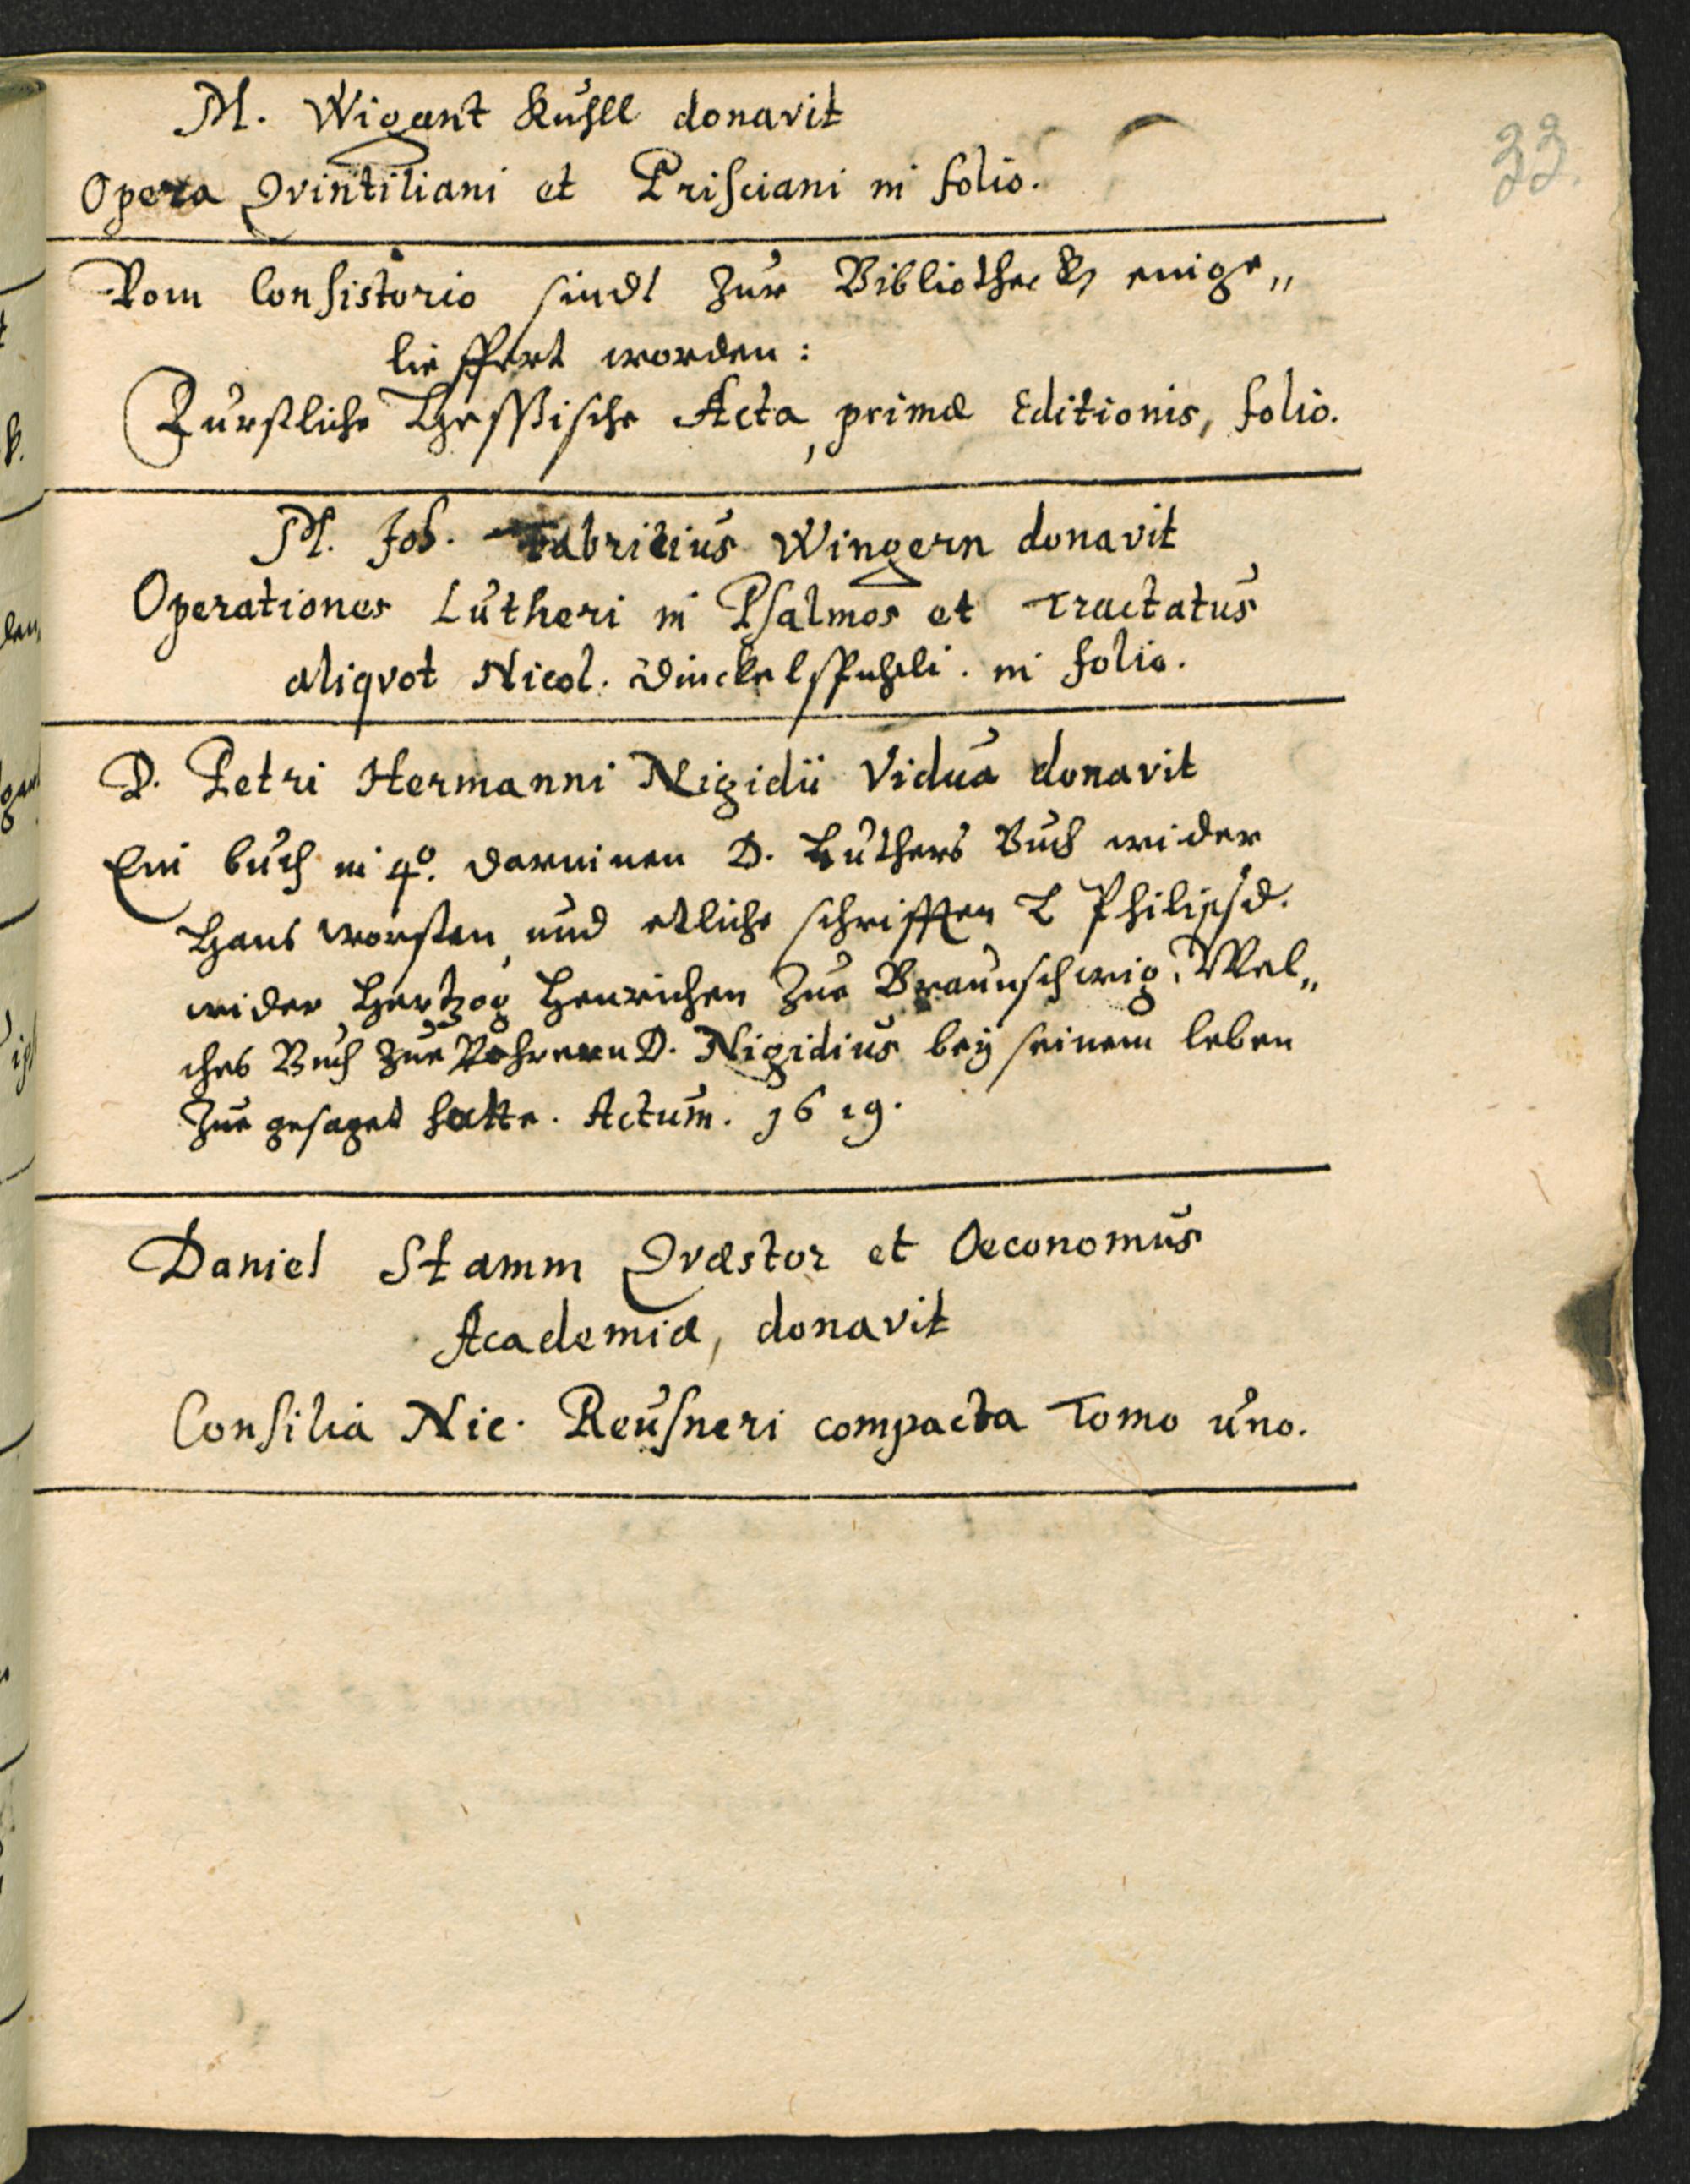 33.
M. Wigant Kuhll donavit
Opera Qvintiliani et Prisciani in folio.
Vom Consistorio sindt zur Bibliotheck einge„
lieffert worden:
Fürstliche Hessische Acta, primæ Editionis, folio.
M. Joh. Fabritius Wingern donavit
Operationes Lutheri in Psalmos et Tractatus
aliqvot Nicol. Dinckelspuheli. in folio.
D. Petri Hermanni Nigidii Vidua donavit
Ein buch in 4º. darinnen D. Luthers Buch wider
Hans worsten, und etliche schrifften L Philipsd.
wider Hertzog Henrichen zue Braunschwig. Wel„
ches Buch zue Vohreren D. Nigidius bey seinem leben
zue gesaget hatte. Actum. 1619.
Daniel Stamm Qvæstor et Oeconomus
Academiæ, donavit
Consilia Nic. Reusneri compacta Tomo uno.